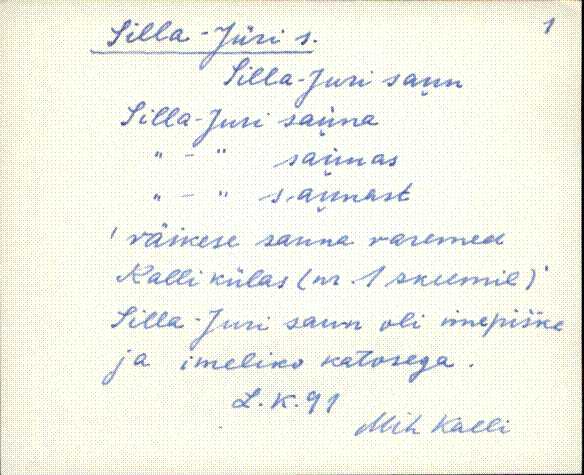 Silla-Jüri s.
1
Silla-Juri saun
Silla-Juri sauna
" - " saunas
" - " saunast
' väikese sauna varemed
Kalli külas (nr. 1 skeemil)'
Silla-Juri saun oli imepiške
ja imeliko katosega.
L.K. 91
Mih Kalli